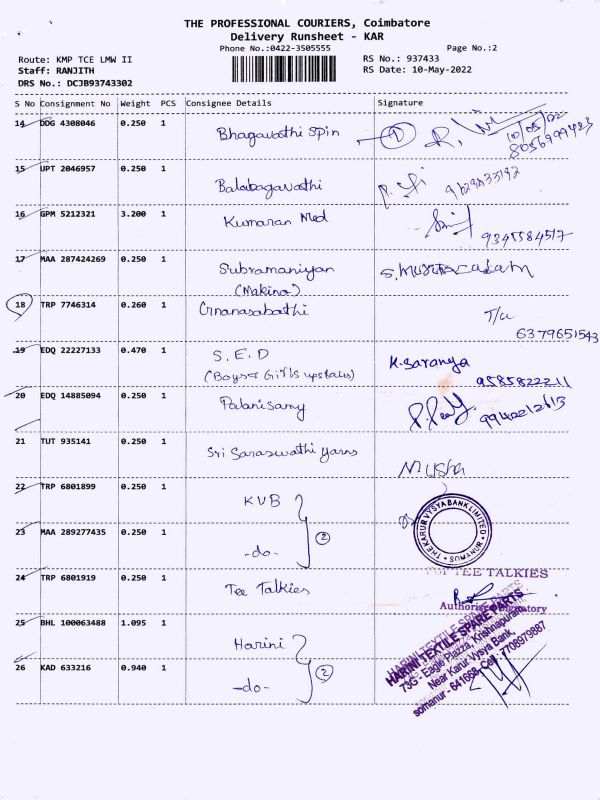 THE PROFESSIONAL COURIERS, Coimbatore
Delivery Runsheet - KAR
Phone No.:0422-3505555
Page No.:2
Route: KMP TCE LMW II
RS No.: 937433
Staff: RANJITH
RS Date: 10-May-2022
DRS No.: DCJB93743302
S No Consignment No Weight PCS Consignee Details Signature
14 DDG 4308046 0.250 1 Bhagavathi Spin 1 10/05/22
8056999423
15 UPT 2046957 0.250 1 Balabagavathi
16 GPM 5212321 3.200 1 Kumaran Med
9345584517
17 MAA 287424269 0.250 1 Subramaniyan
(Makino)
18 TRP 7746314 0.260 1 Gnanasabathi
6379651543
19 EDQ 22227133 0.470 1 S.E.D K.Saranya
(Boys & Girls upstairs) 9585822211
20 EDQ 14885094 0.250 1 Palanisamy
9942212613
21 TUT 935141 0.250 1 Sri Saraswathi yarns
22 TRP 6801899 0.250 1 KVB
THE KARUR VYSYA BANK LIMITED
2
23 MAA 289277435 0.250 1 -do-
24 TRP 6801919 0.250 1 Tee Talkies
TEE TALKIES
Authorised Signatory
25 BHL 100063488 1.095 1 Harini
2
26 KAD 633216 0.940 1 -do-
HARINI TEXTILE SPARE PARTS
73G - Eagle Plazza, Krishnapuram,
Near Karur Vysya Bank,
somanur - 641668. Cell : 7708979887